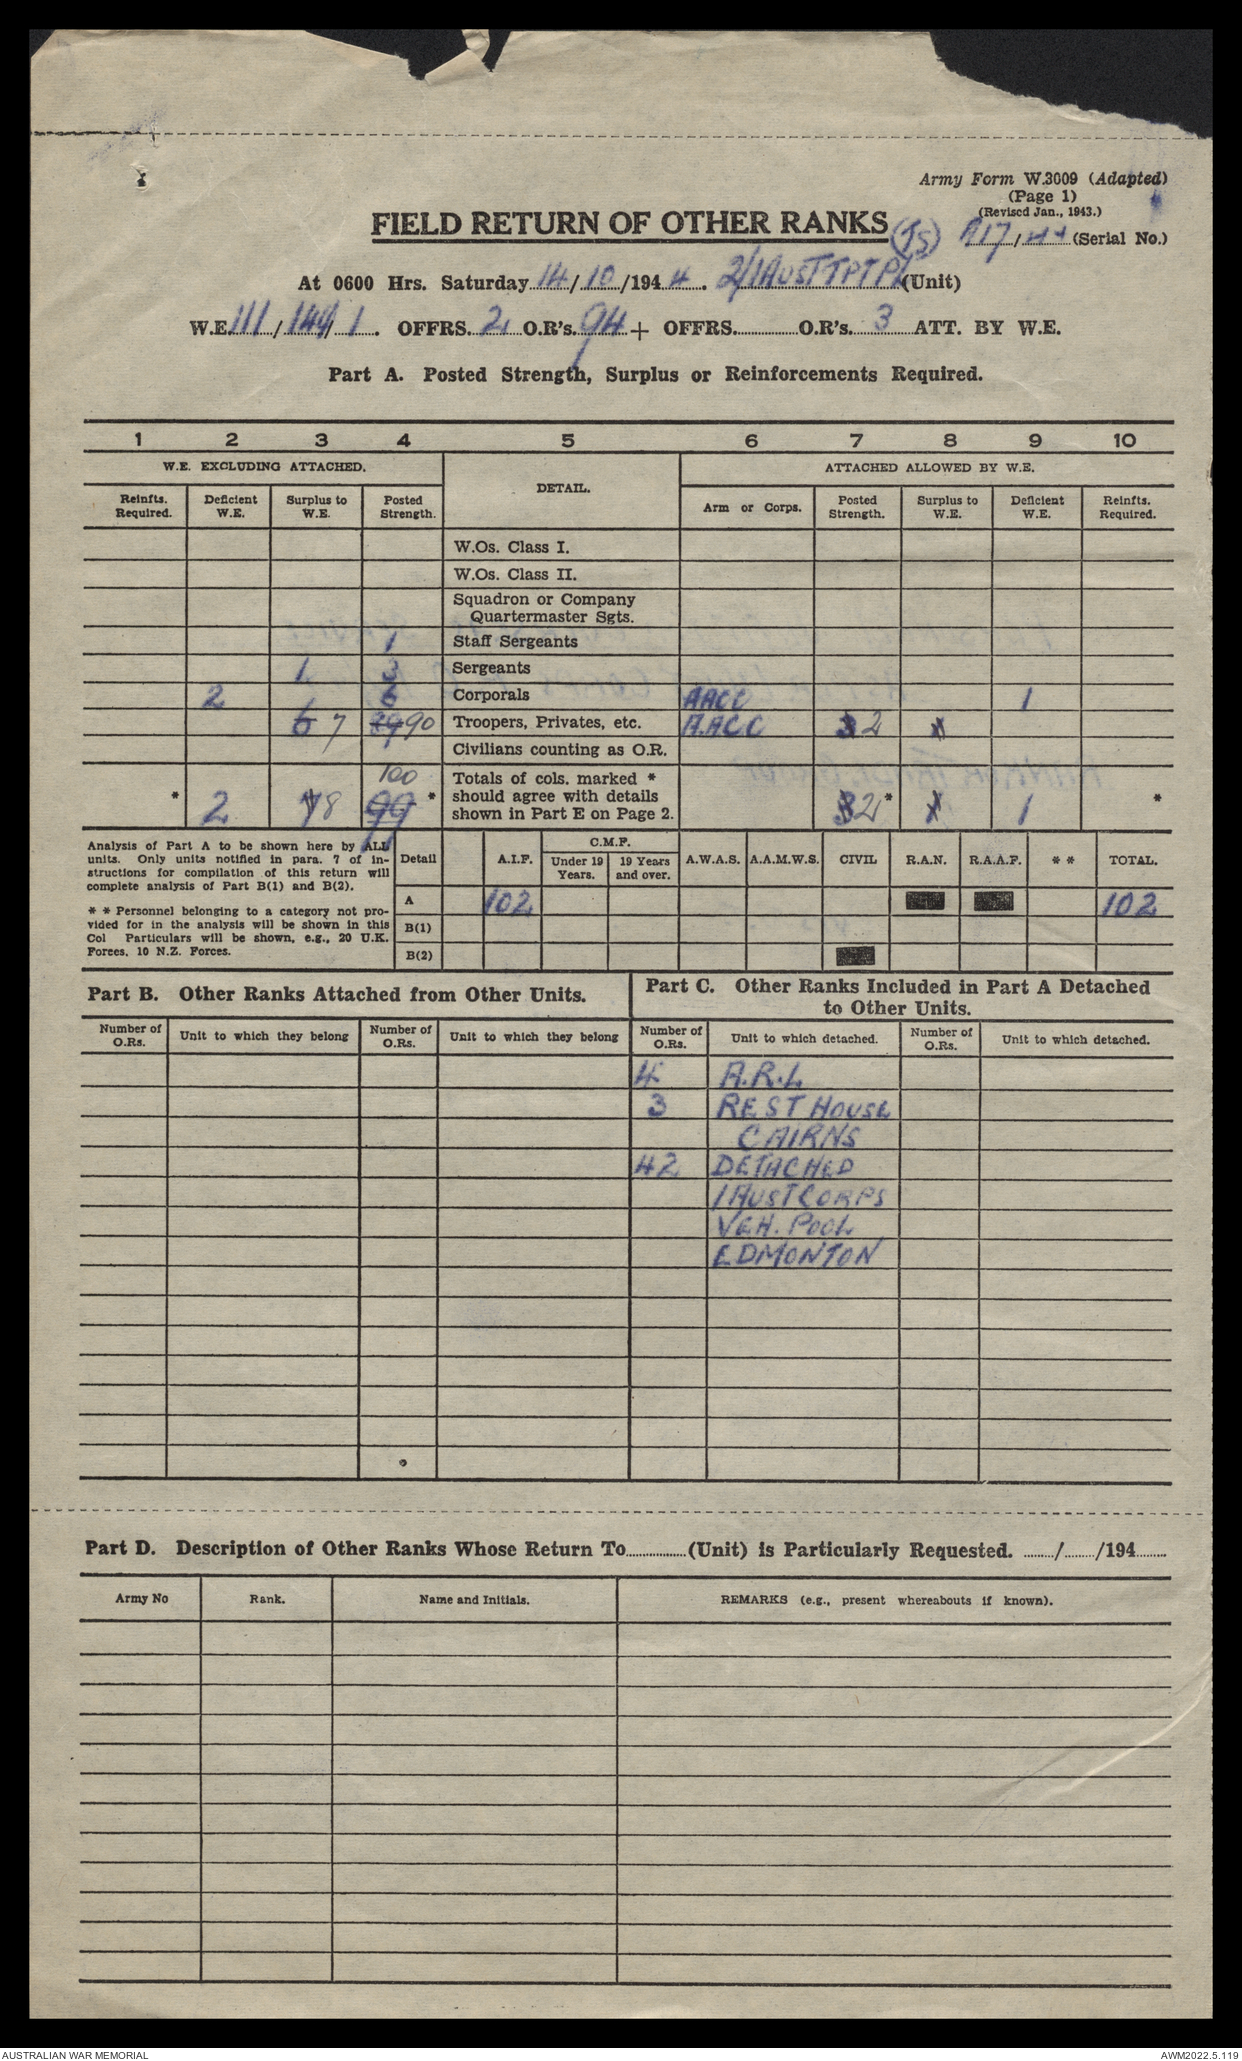 Army Form W.3009 (Adapted)
(Page 1)
(Revised Jan., 1943.)
FIELD RETURN OF OTHER RANKS
(TS) /44 (Serial No.)
At 0600 Hrs. Saturday 14/10/1944. 2/1 AUST TPT PL (Unit)
W.E. 111/ /1. OFFRS. 2 O.R's. 94 + OFFRS. O.R's. 3 ATT. BY W.E.
Part A. Posted Strength, Surplus or Reinforcements Required.
1 2 3 4 5 6 7 8 9 10
W.E. EXCLUDING ATTACHED. DETAIL. ATTACHED ALLOWED BY W.E.
Reinfts. Required. Deficient W.E. Surplus to W.E. Posted Strength. Arm or Corps. Posted Strength. Surplus to W.E. Deficient W.E. Reinfts. Required.
W.Os. Class I.
W.Os. Class II.
Squadron or Company
Quartermaster Sgts.
1 Staff Sergeants
1 3 Sergeants
2 6 Corporals AACC 1
6 7 89 90 Troopers, Privates, etc. A.ACC 3 2 1
Civilians counting as O.R.
100 Totals of cols. marked *
* 2 7 8 99 * should agree with details 3 2 * 1 1 *
shown in Part E on Page 2.
Analysis of Part A to be shown here by ALL
units. Only units notified in para. 7 of in-
structions for compilation of this return will
complete analysis of Part B(1) and B(2).
* * Personnel belonging to a category not pro-
vided for in the analysis will be shown in this
Col Particulars will be shown, e.g., 20 U.K.
Forces, 10 N.Z. Forces.
Detail A.I.F. C.M.F. Under 19 Years. 19 Years and over. A.W.A.S. A.A.M.W.S. CIVIL R.A.N. R.A.A.F. * * TOTAL.
A 102 102
B(1)
B(2)
Part B. Other Ranks Attached from Other Units.
Part C. Other Ranks Included in Part A Detached
to Other Units.
Number of O.Rs. Unit to which they belong Number of O.Rs. Unit to which they belong Number of O.Rs. Unit to which detached. Number of O.Rs. Unit to which detached.
4 A.R.L
3 REST HOUSE
CAIRNS
42 DETACHED
1 AUST CORPS
VEH. POOL
EDMONTON
Part D. Description of Other Ranks Whose Return To (Unit) is Particularly Requested. / /194
Army No Rank. Name and Initials. REMARKS (e.g., present whereabouts if known).
AUSTRALIAN WAR MEMORIAL AWM2022.5.119